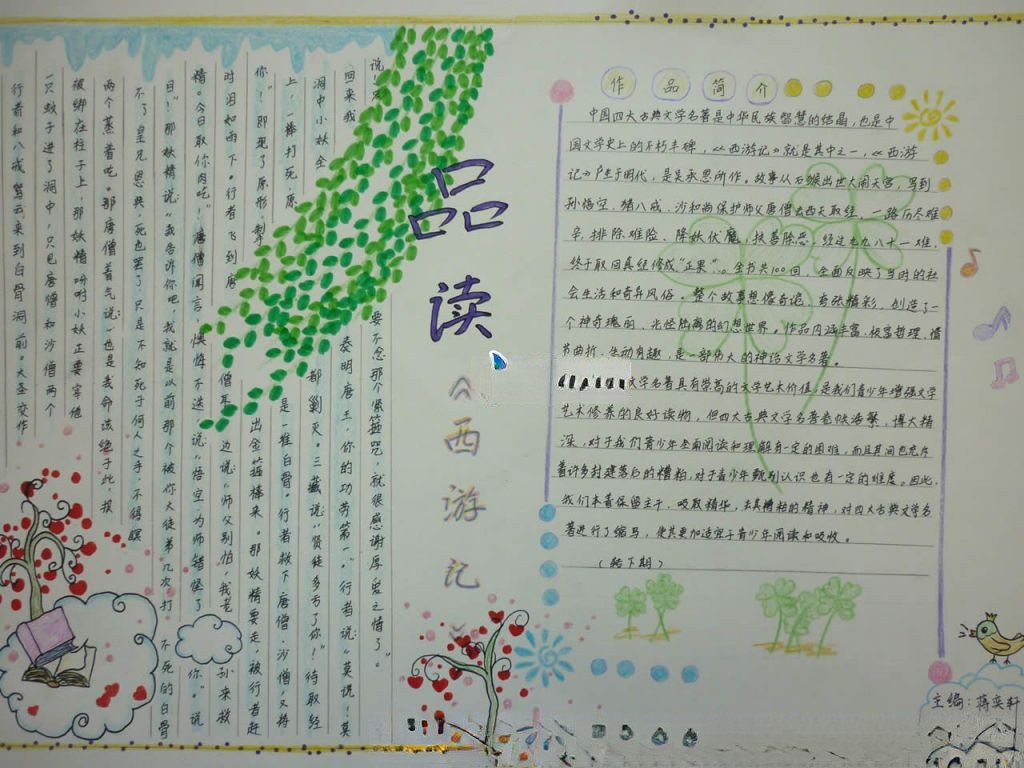 品读
《西游记》
行者和八戒驾云来到白骨洞前。大圣变作
一只蚊子进了洞中,只见唐僧和沙僧两个
被绑在柱子上,那妖精吩咐小妖正要宰他
两个蒸着吃。那唐僧着气说:"也是我命该绝于此,报
不了皇兄恩典,死也罢了,只是不知死于何人之手,不得瞑
日!"那妖精说:"我告诉你吧,我就是以前那个被你大徒弟几次打不死的白骨
精。今日取你肉吃!"唐僧闻言,懊悔不迭,说:"悟空,为师错怪了你。"说
时泪如雨下。行者飞到唐僧耳边说:"师父别怕,我老孙来救
你!"即现了原形,掣出金箍棒来。那妖精要走,被行者赶
上,一棒打死,原是一堆白骨。行者救下唐僧、沙僧,又将
洞中小妖全都剿灭。三藏说:"贤徒多亏了你!待取经
回来我表明唐王,你的功劳第一。"行者说:"莫说!莫
说!只要不念那个紧箍咒,就很感谢厚恩之情了。"
作品简介
中国四大古典文学名著是中华民族智慧的结晶,也是中
国文学史上的不朽丰碑,《西游记》就是其中之一,《西游
记》产生于明代,是吴承恩所作。故事从石猴出世大闹天宫,写到
孙悟空、猪八戒、沙和尚保护师父唐僧去西天取经,一路历尽难
辛,排除难险、降妖伏魔,扶善除恶。经过九九八十一难,
终于取回真经修成"正果"。全书共100回,全面反映了当时的社
会生活和奇异风俗。整个故事想像奇诡,夸张精彩,创造了一
个神奇瑰丽、光怪陆离的幻想世界。作品内涵丰富、极富哲理,情
节曲折、生动有趣,是一部伟大的神话文学名著。
文学名著具有崇高的文学艺术价值,是我们青少年增强文学
艺术修养的良好读物,但四大古典文学名著卷帙浩繁、博大精
深,对于我们青少年全面阅读和理解有一定的困难,而且其间也充斥
着许多封建落后的糟粕,对于青少年甄别认识也有一定的难度。因此,
我们本着保留主干、吸取精华、去其糟粕的精神,对四大古典文学名
著进行了缩写,使其更加适宜于青少年阅读和吸收。
(转下期)
主编:蒋奕轩